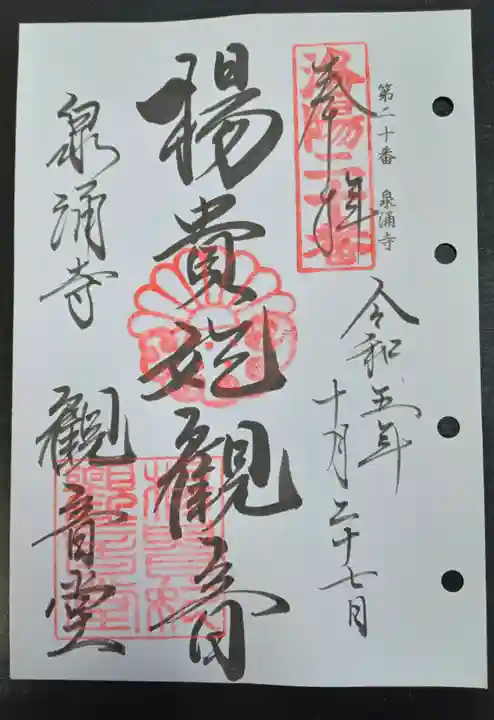 第二十番 泉涌寺
奉拝
洛陽二十番
令和五年
十月二十七日
楊貴妃観音
泉涌寺 観音堂